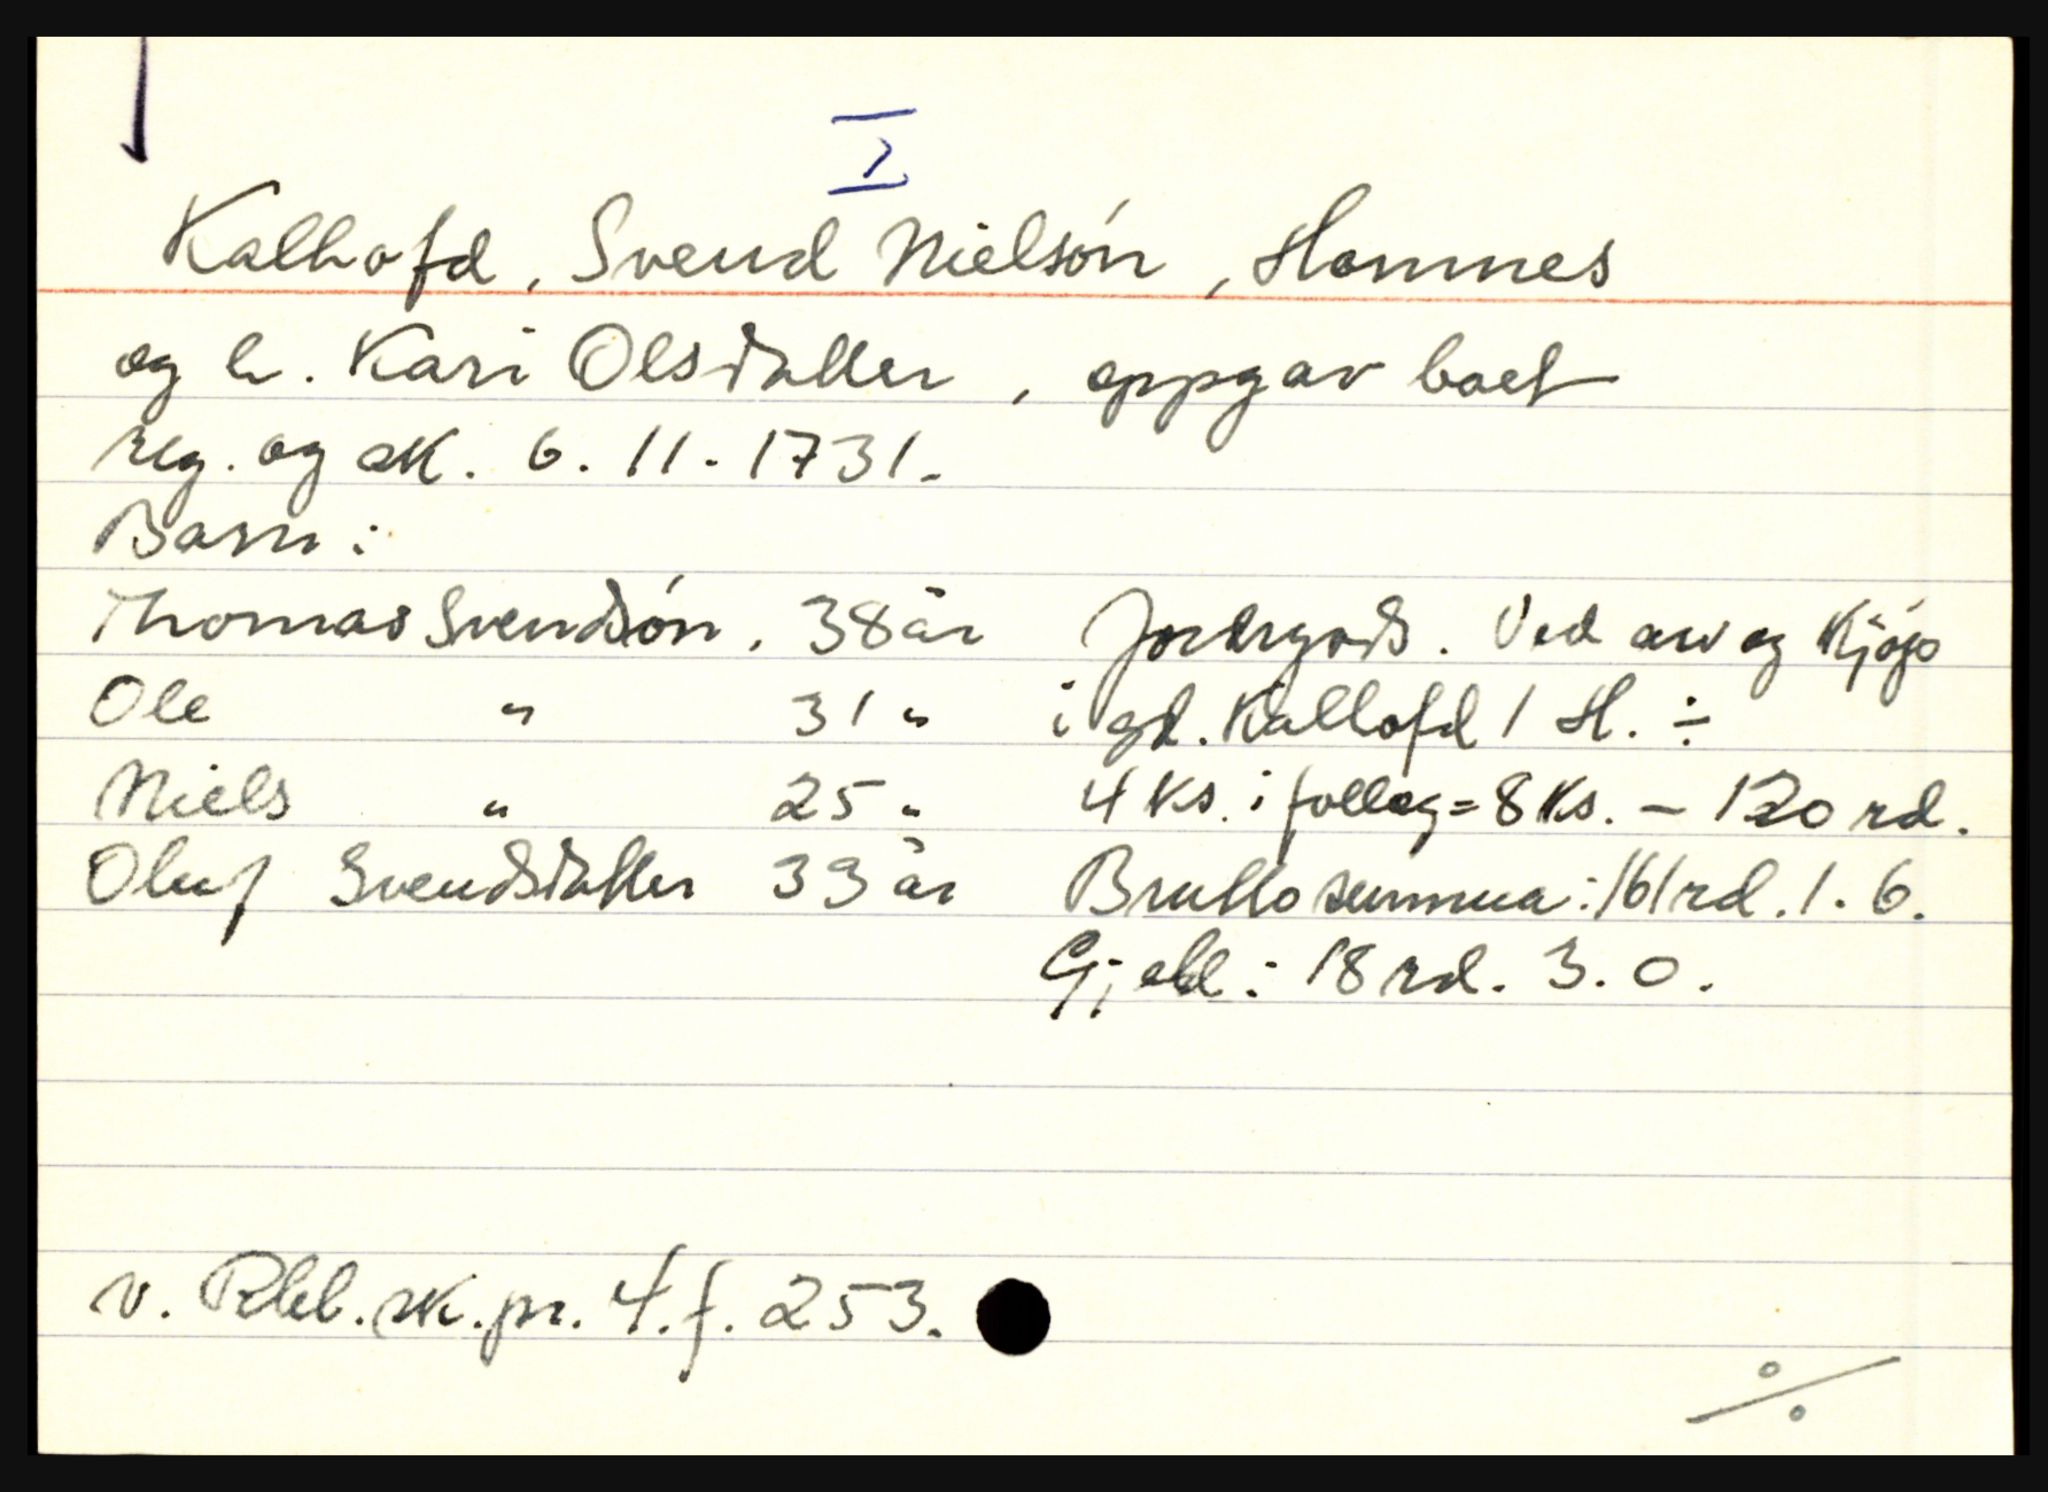 I
Kalhofd, Svend Nielsón, Homnes
og h. Kari Olsdatter, oppgav boet
reg. og sk. 6. 11. 1731.
Barn:
Thomas Svendsón, 38 år
Ole " 31 "
Niels " 25 "
Oluf Svendsdatter 33 år
Jordegods. Ved arv og Kjøp
i gd. Kallofd 1 H. ÷
4 Ks. i follog = 8 Ks. - 120 rd.
Brutto summa: 161 rd. 1. 6.
Gjeld: 18 rd. 3. 0.
v. Rbl. sk. pr. 4. f. 253.